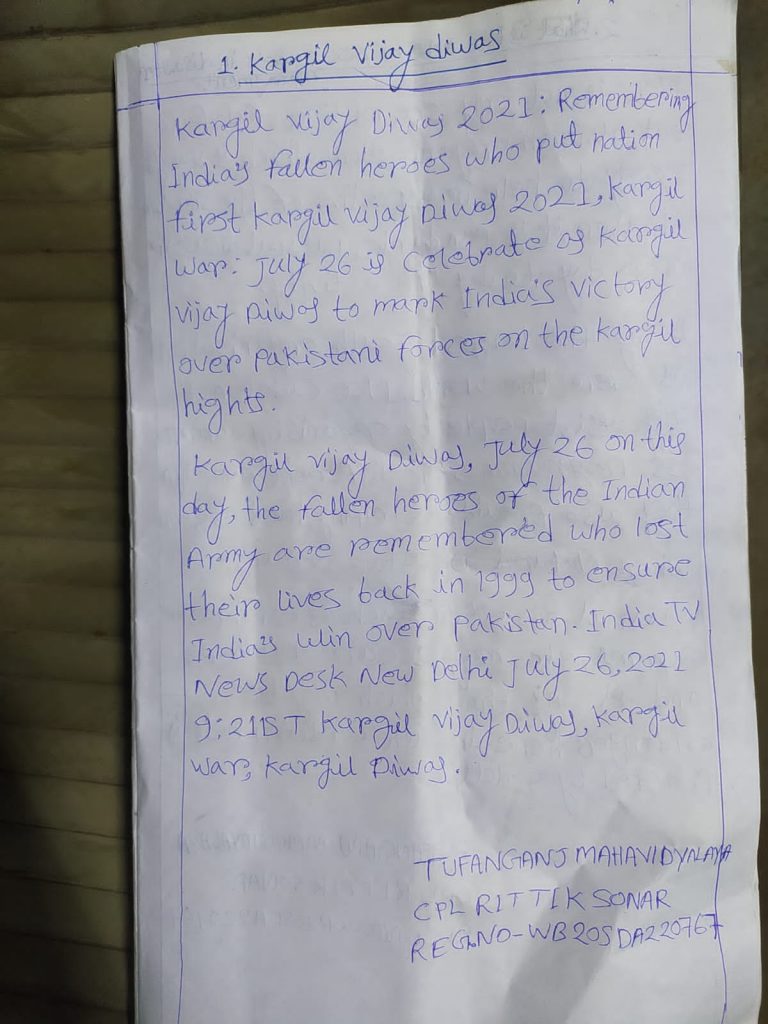 1. Kargil Vijay diwas
Kargil Vijay Diwas 2021: Remembering
India's fallen heroes who put nation
first Kargil Vijay Diwas 2021, Kargil
War: July 26 is celebrate as Kargil
Vijay Diwas to mark India's victory
over Pakistani forces on the Kargil
hights.
Kargil Vijay Diwas, July 26 on this
day, the fallen heroes of the Indian
Army are remembered who lost
their lives back in 1999 to ensure
India's win over Pakistan. India TV
News Desk New Delhi July 26, 2021
9:21IST Kargil Vijay Diwas, Kargil
War, Kargil Diwas.
TUFANGANJ MAHAVIDYALAYA
CPL RITTIK SONAR
REG.NO-WB20SDA220767